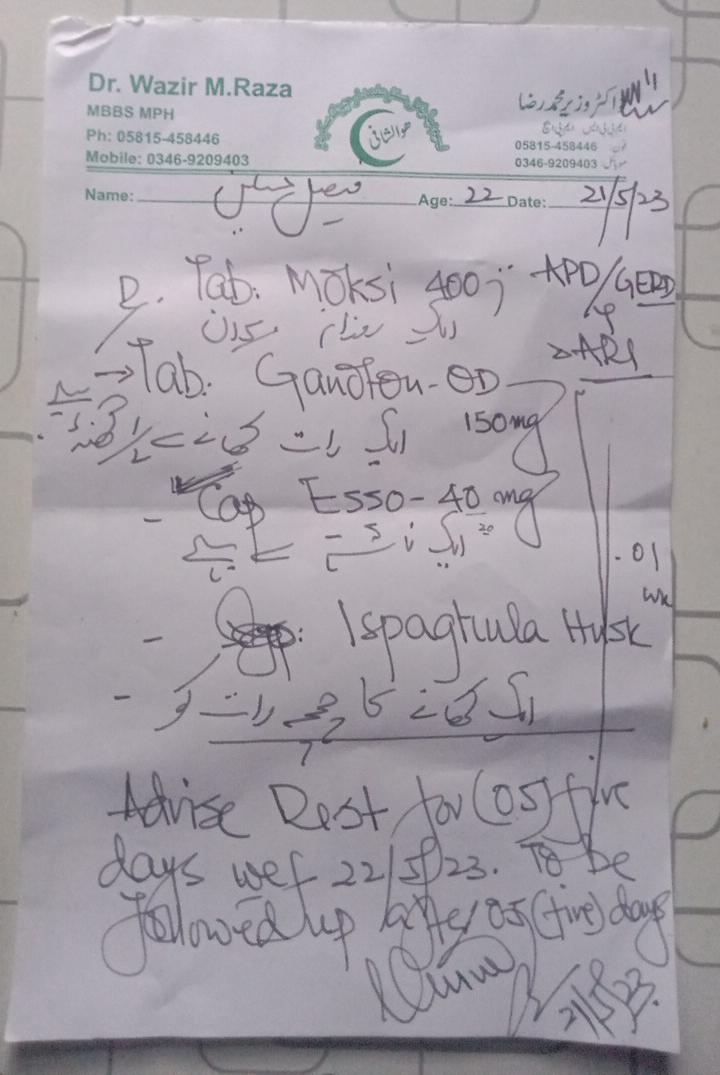 Dr. Wazir M.Raza
MBBS MPH
Ph: 05815-458446
Mobile: 0346-9209403
ھوالشافی
ڈاکٹر وزیر محمد رضا
ایم بی بی ایس ایم پی ایچ
05815-458446 فون
0346-9209403 موبائل
Name: فیصل Age: 22 Date: 21/5/23
Tab: Moksi 400 APD/GERD
ایک روزانہ
ARI
→ Tab: Ganoton-OD
150mg
ایک رات کھانے سے 1/2 گھنٹہ
- Cap Esso-40 mg
20
ایک ناشتے سے
. 01
wk
- Ispaghula Husk
- ایک کھانے کا چمچ رات کو
Advise Rest for (05) five
days wef 22/5/23. To be
followed up after 05 (five) days
21/5/23.